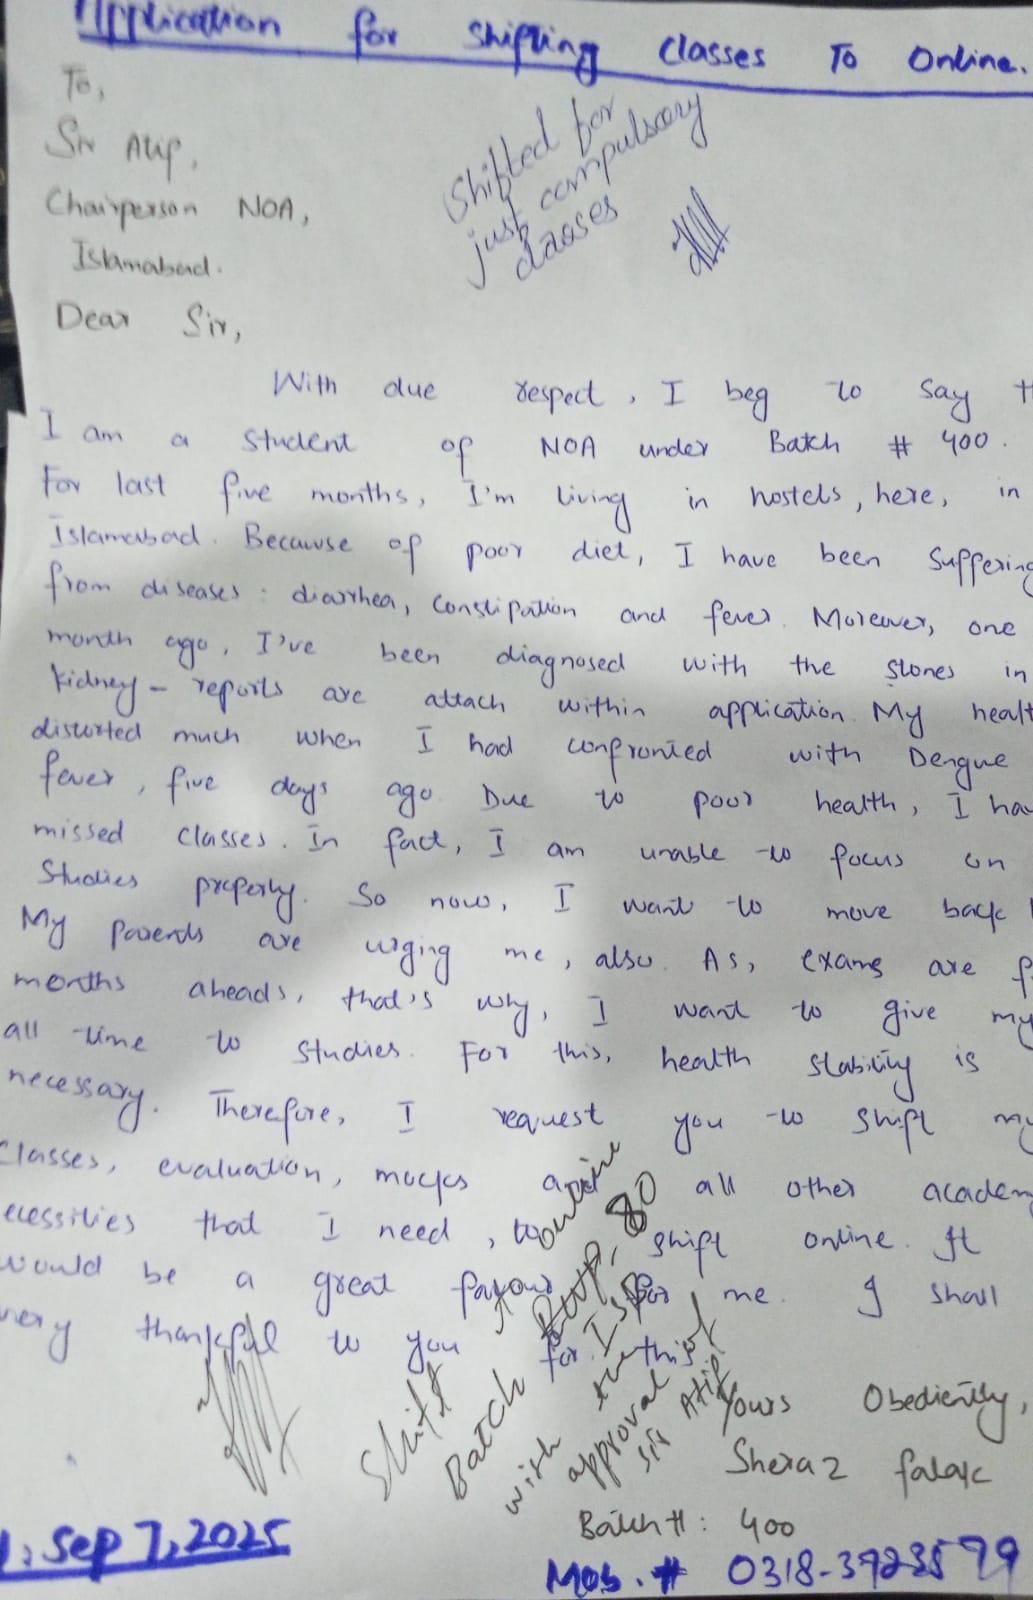 Application for Shifting Classes To Online.
To,
Sir Atif,
Chairperson NOA,
Islamabad.
Dear Sir,
Shifted for
just compulsory
classes
With due respect, I beg to say th
I am a student of NOA under Batch # 400.
For last five months, I'm living in hostels, here, in
Islamabad. Because of poor diet, I have been suffering
from diseases : diarrhea, constipation and fever. Moreover, one
month ago, I've been diagnosed with the stones in
kidney - reports are attach within application. My healt
distorted much when I had confronted with Dengue
fever, five days ago. Due to poor health, I ha
missed classes. In fact, I am unable to focus on
Studies properly. So now, I want to move back
My parents are urging me, also. As, exams are f
months aheads, that's why, I want to give my
all time to studies. For this, health stability is
necessary. Therefore, I request you to shift my
Classes, evaluation, mocks all other academ
ecessities that I need, to shift online. It
would be a great favour for me. I shall
very thankful to you for this.
Shift
Batch
with the
approval of
sir Atif
Yours Obediently,
Sheraz falak
Batch #: 400
Sep 7, 2025
Mob. # 0318-3923579